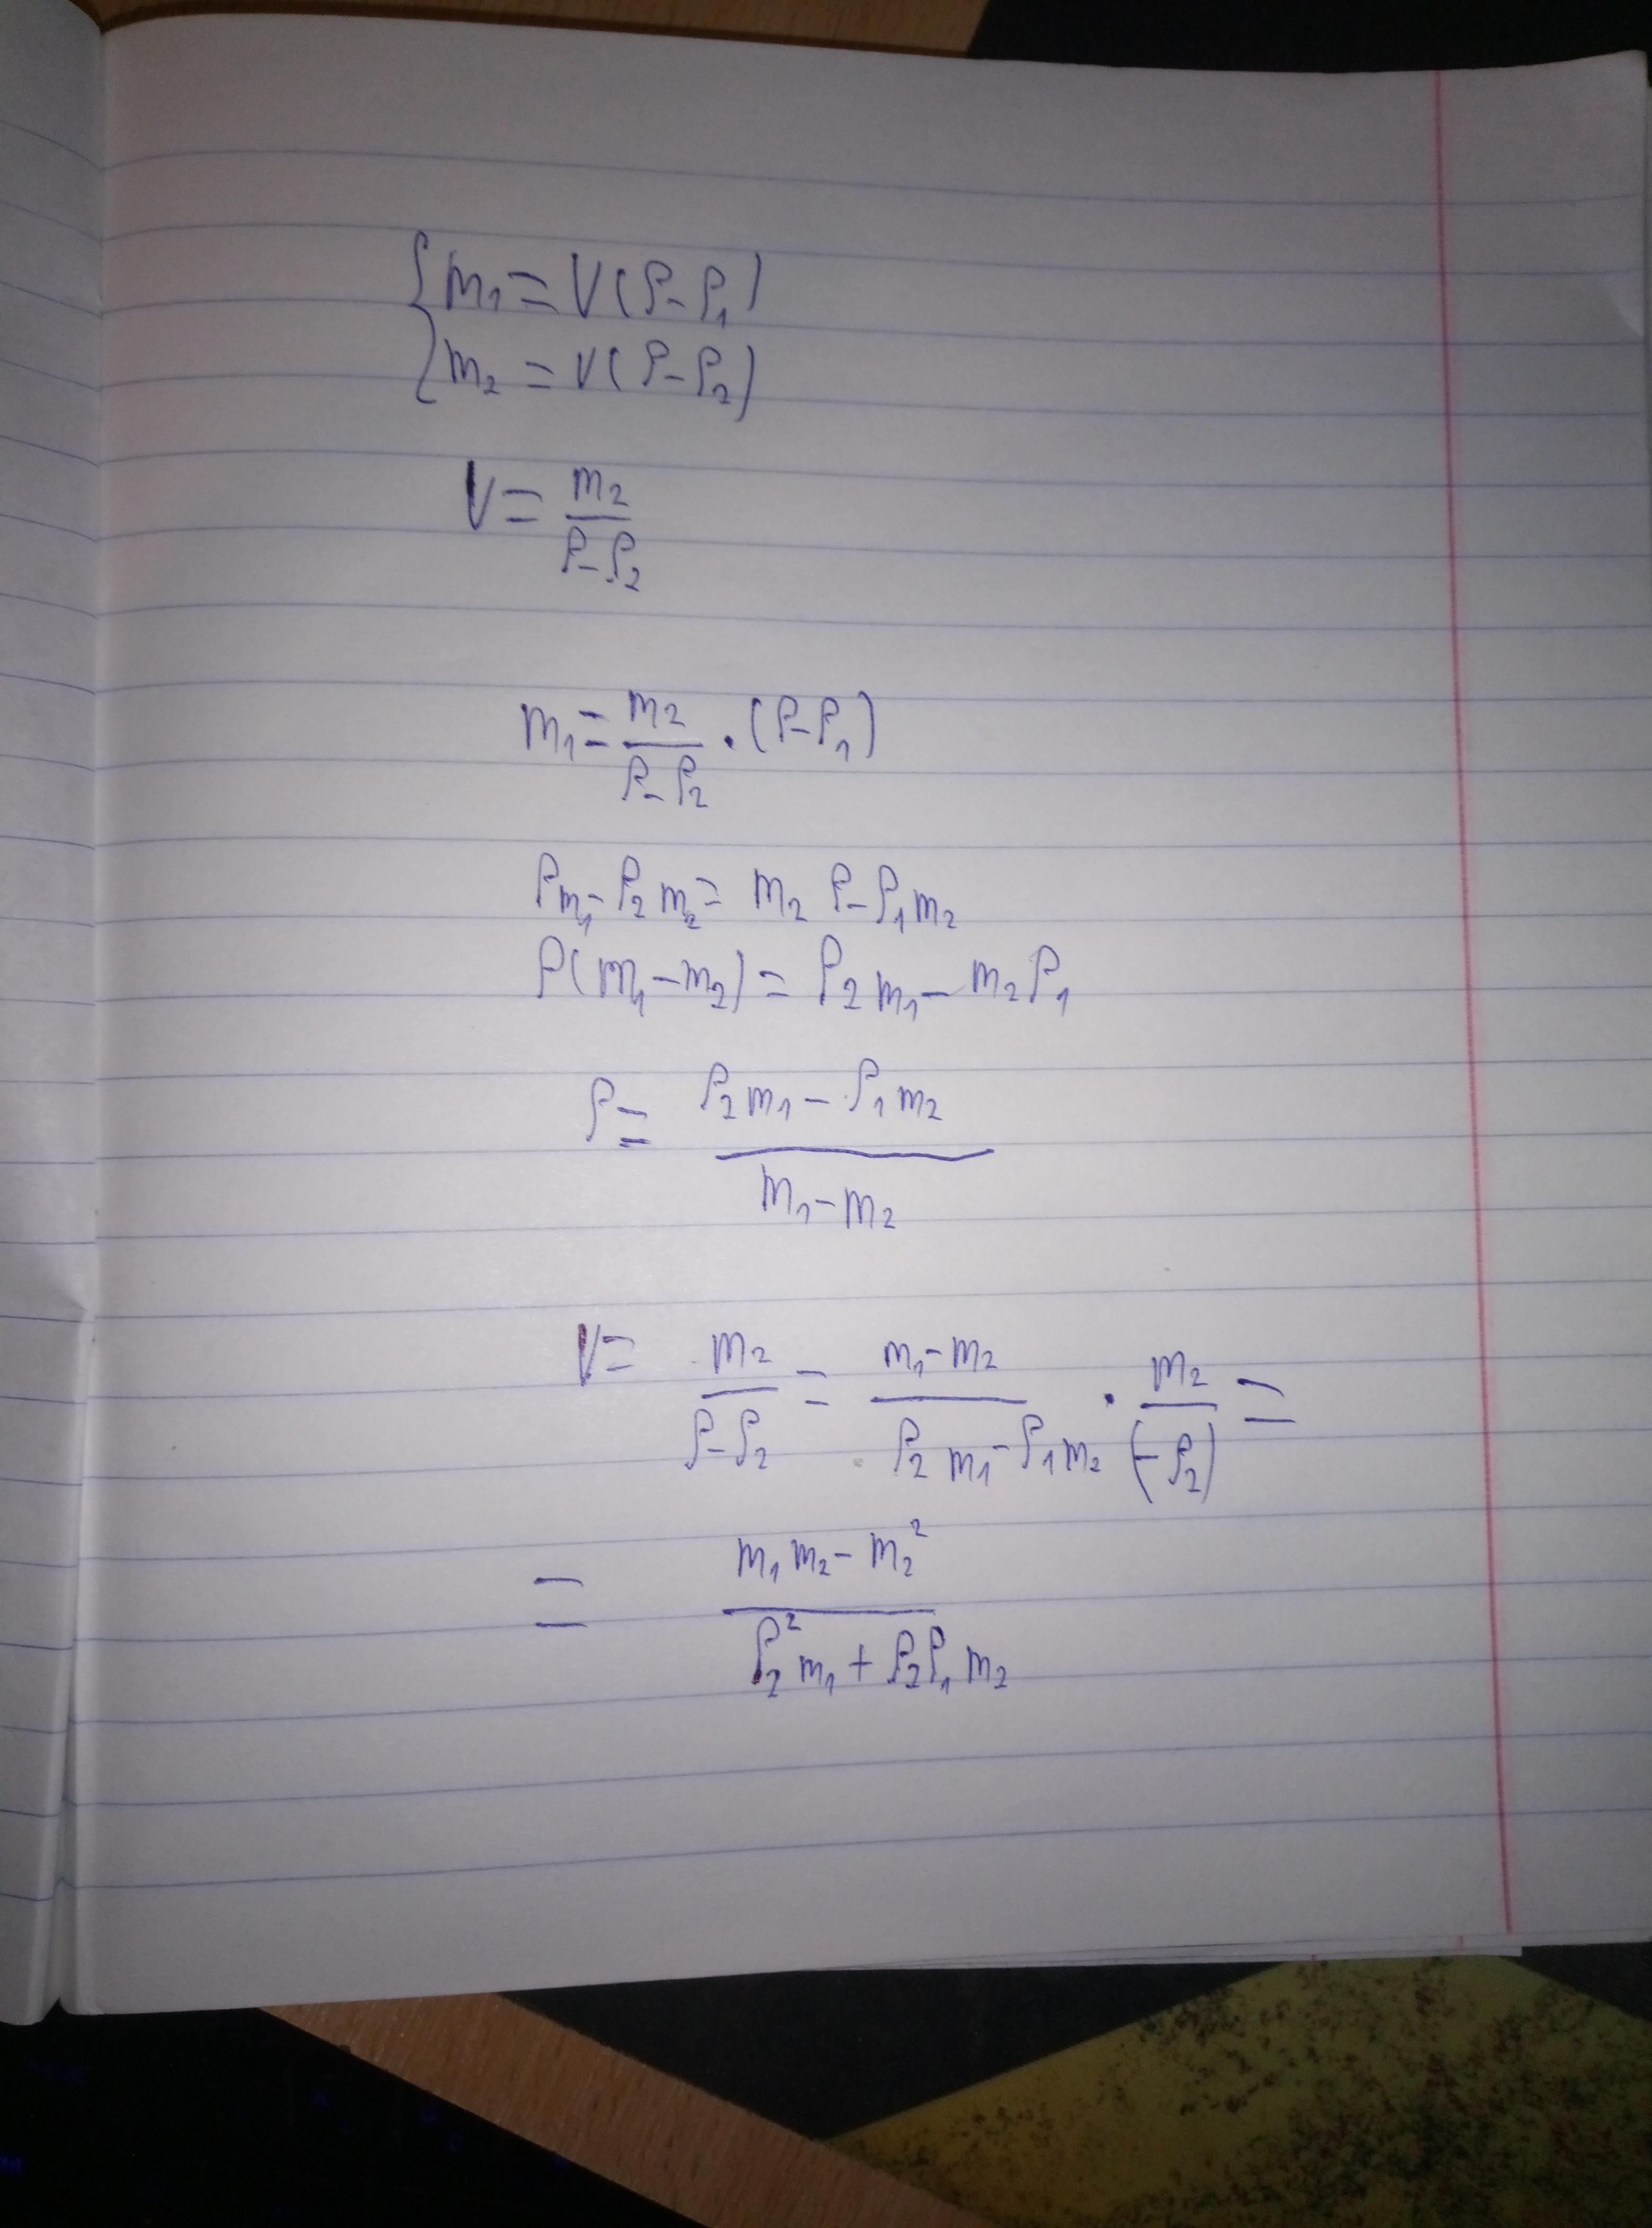 { m₁ = V(ρ - ρ₁)
m₂ = V(ρ - ρ₂)
V = m₂ / (ρ - ρ₂)
m₁ = m₂ / (ρ - ρ₂) · (ρ - ρ₁)
ρm₁ - ρ₂m₂ = m₂ρ - ρ₁m₂
ρ(m₁ - m₂) = ρ₂m₁ - m₂ρ₁
ρ = (ρ₂m₁ - ρ₁m₂) / (m₁ - m₂)
V = m₂ / (ρ - ρ₂) = (m₁ - m₂) / (ρ₂m₁ - ρ₁m₂) · m₂ / (-ρ₂) =
= (m₁m₂ - m₂²) / (ρ₂²m₁ + ρ₂ρ₁m₂)